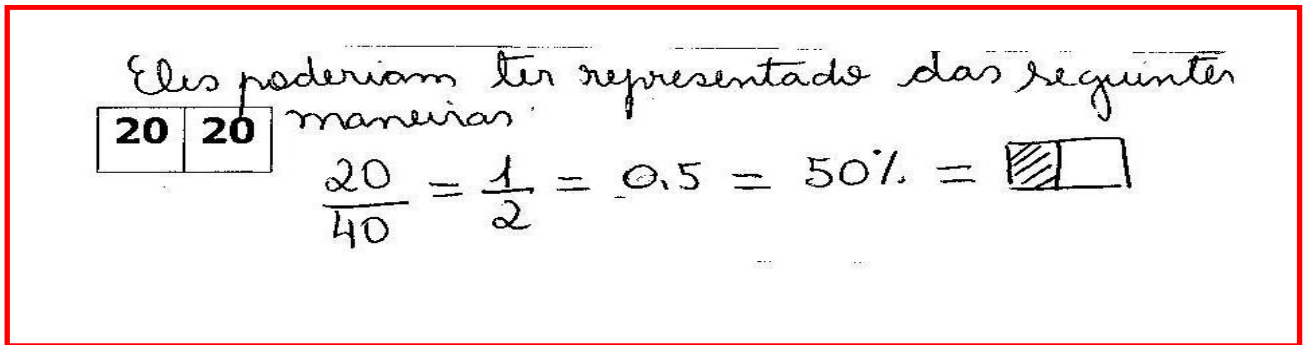 Eles poderiam ter representado das seguintes
20 20 maneiras:
20/40 = 1/2 = 0,5 = 50% =